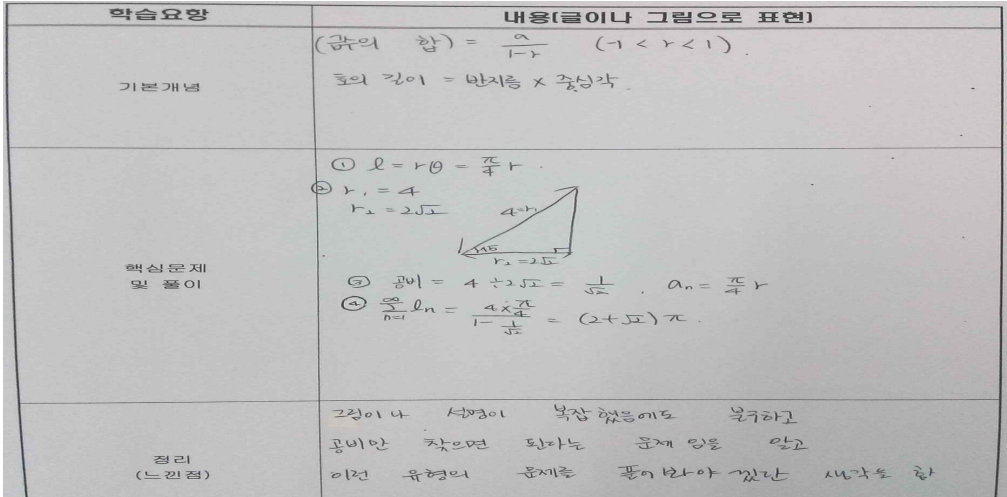 학습요항
내용(글이나 그림으로 표현)
기본개념
(급수의 합) = a/(1-r) (-1 < r < 1).
호의 길이 = 반지름 × 중심각
핵심문제
및 풀이
① l = rθ = π/4 r.
② r₁ = 4
r₂ = 2√2
4=r₁
45
r₂=2√2
③ 공비 = 4÷2√2 = 1/√2 . aₙ = π/4 r
④ ∞∑n=1 lₙ = (4×π/4)/(1-1/√2) = (2+√2)π.
정리
(느낀점)
그림이나 설명이 복잡했음에도 불구하고
공비만 찾으면 된다는 문제임을 알고
이런 유형의 문제를 풀어봐야겠단 생각을 함